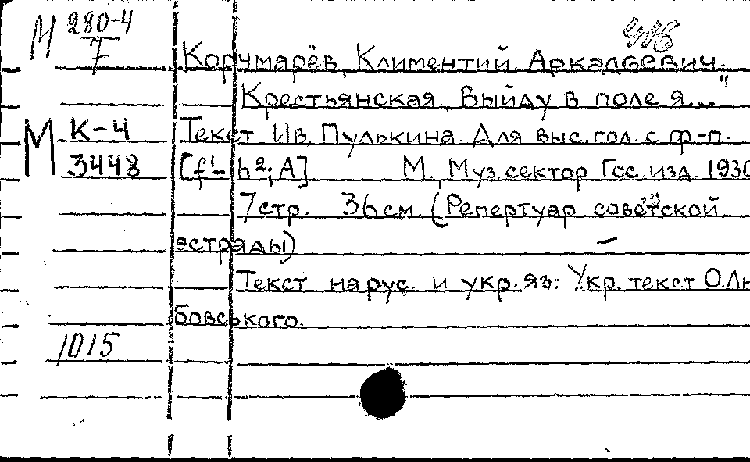 М 280-4
7
Корчмарёв, Климентий Аркадьевич.
Крестьянская „Выйду в поле я..."
М К-4 Текст Ив. Пулькина. Для выс. гол. с ф-п.
3448 [f¹-b²; A]. М. Муз. сектор Гос. изд. 1930
7 стр. 36 см. (Репертуар советской
эстрады)
Текст на рус. и укр. яз: Укр. текст О.
бовського.
1015